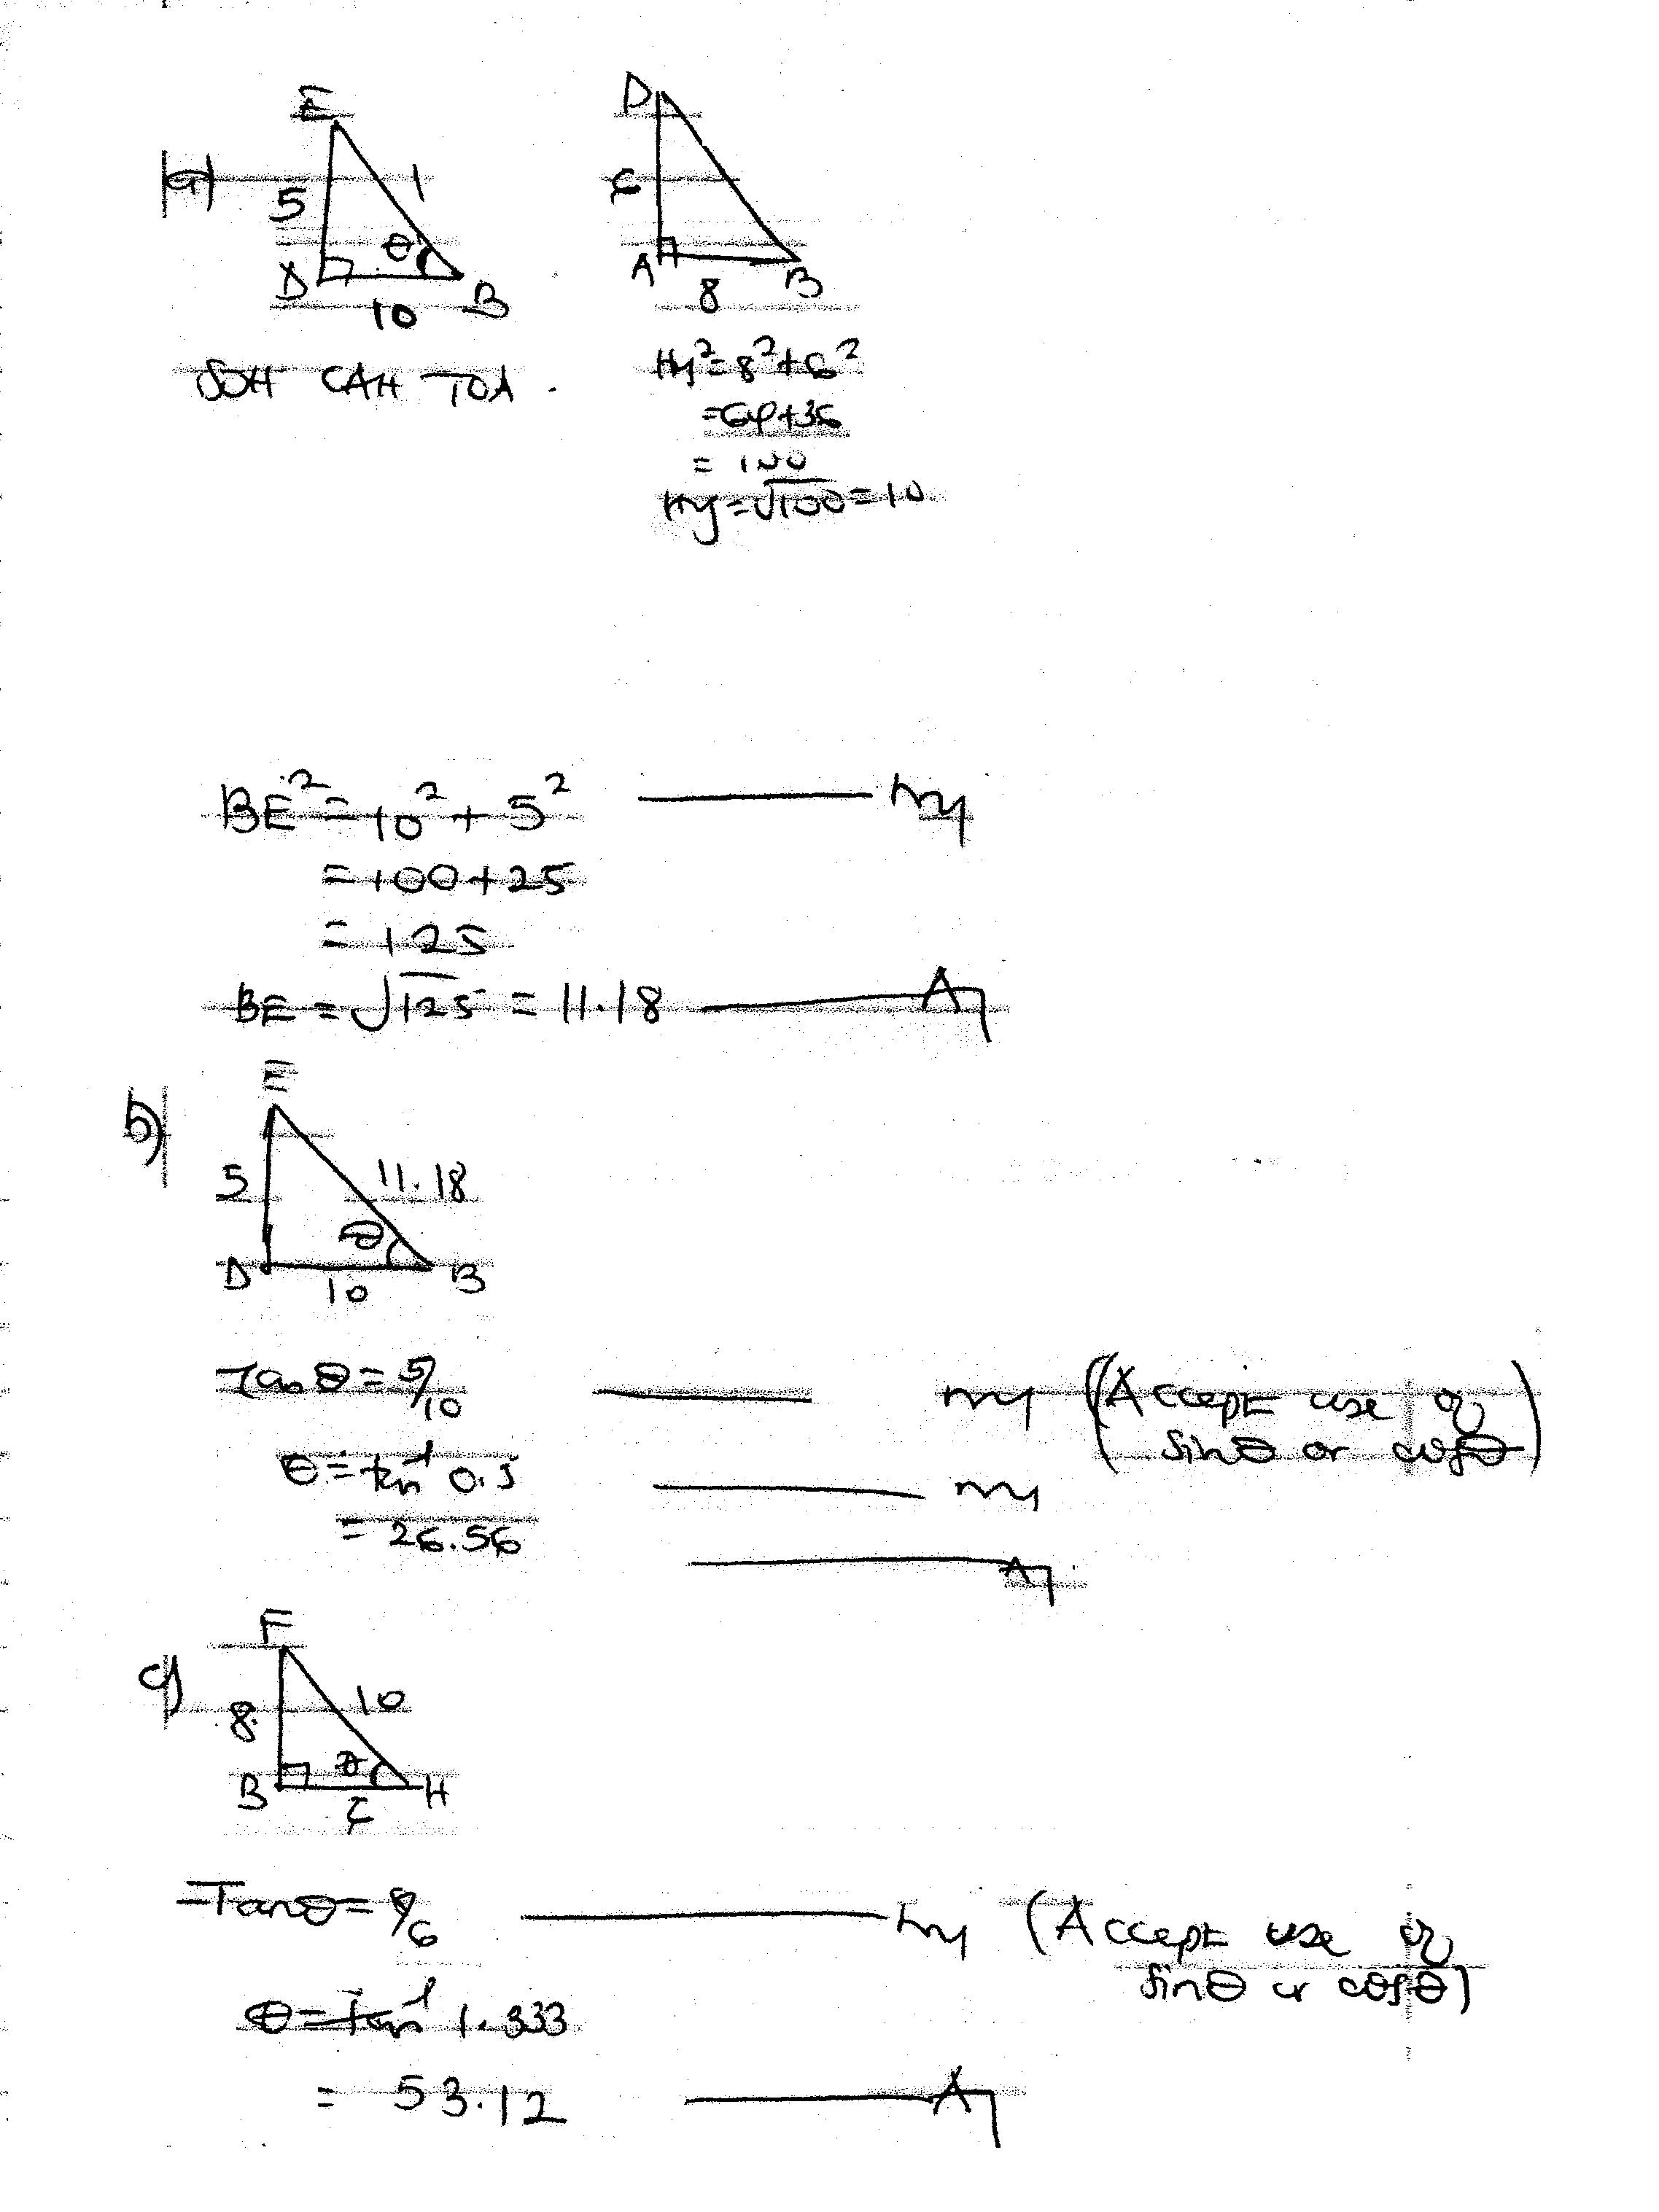 a)
E
5
θ
D
10
B
D
6
A
8
B
SOH CAH TOA.
Hy²=8²+6²
=64+36
= 100
Hy=√100=10
BE²=10²+5² M1
=100+25
=125
BE=√125 = 11.18 A1
b)
E
5
11.18
θ
D
10
B
Tan θ=5/10 M1 (Accept use of
sinθ or cosθ)
θ=tan⁻¹ 0.5 M1
= 26.56 A1
c)
F
8
10
θ
B
6
H
Tanθ=8/6 M1 (Accept use of
sinθ or cosθ)
θ=tan⁻¹ 1.333
= 53.12 A1